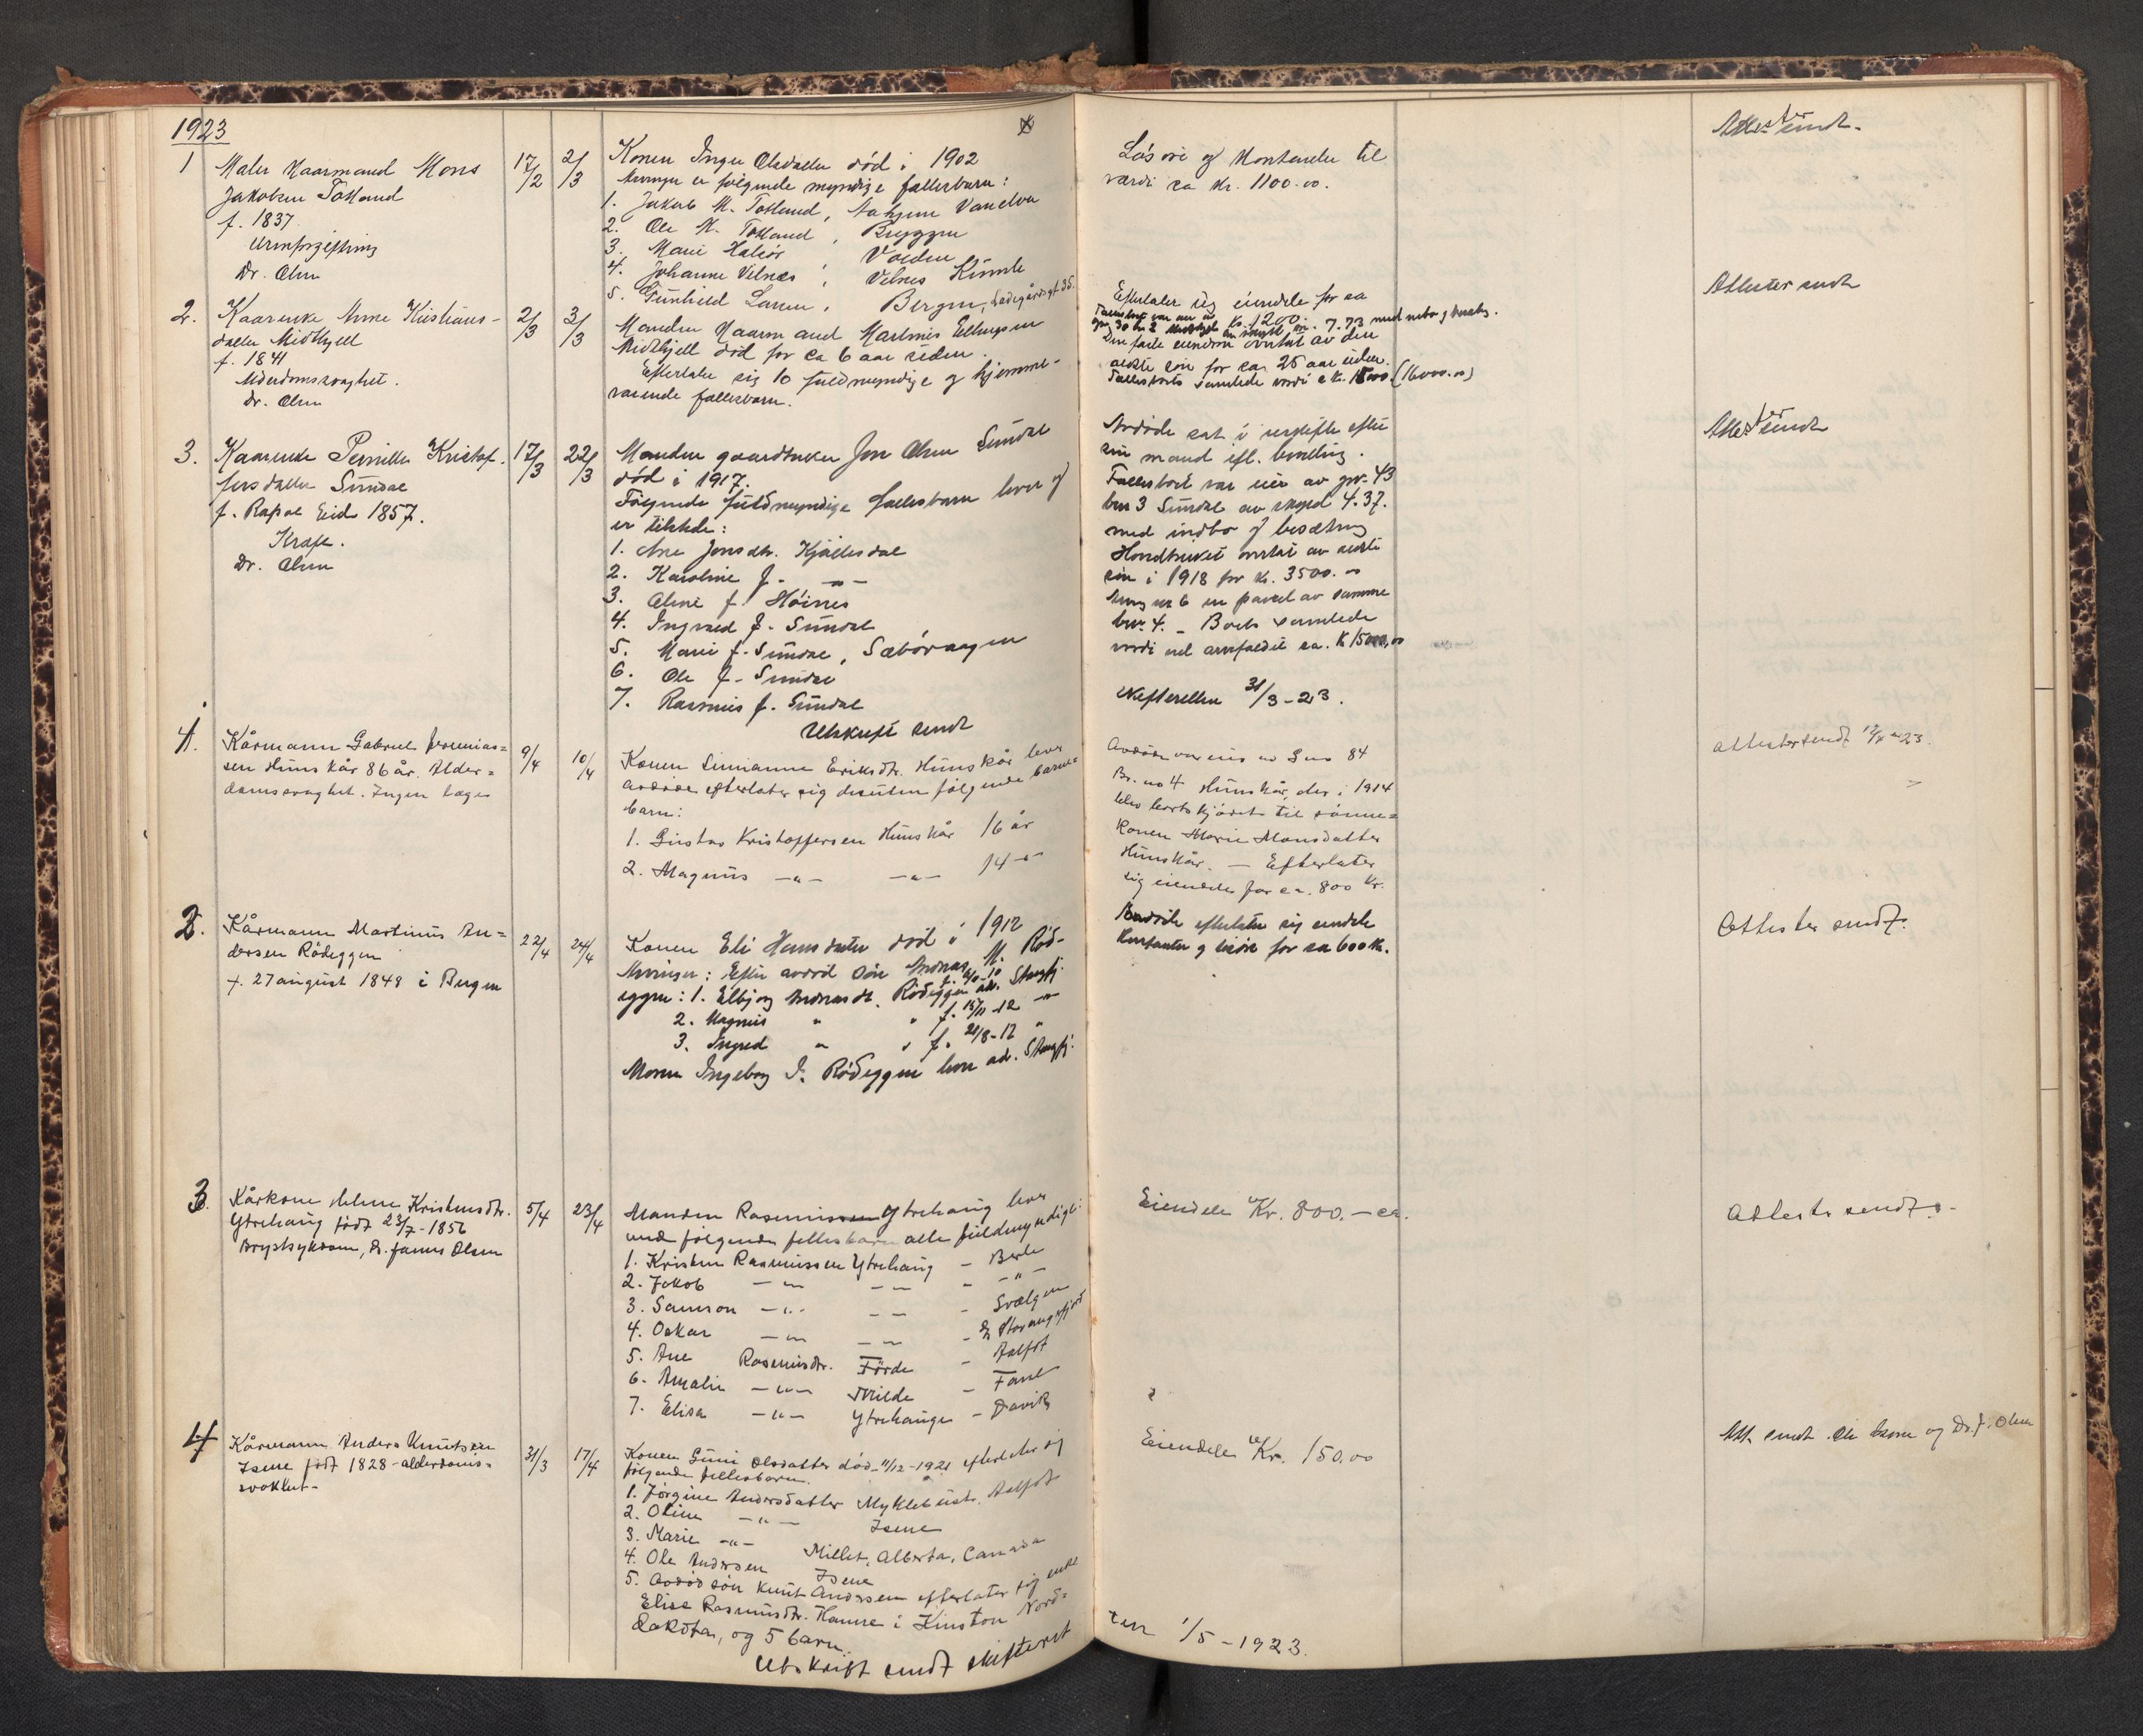 1923
1 Maler Kaarmand Mons
Jakobsen Totland
f. 1837
Urinforgiftning
Dr. Olsen
17/2
2/3
Konen Inger Olsdatter død i 1902
Arvinger er følgende myndige fællesbarn:
1. Jakob M. Totland,
2. Ole M. Totland, Bryggen
3. Marie
4. Johanne Vilnes, Vilnes Kinnle
5. Gunhild Larsen, Bergen, Ladegårdsgt 35.
Løsøre og Kontanter til
værdi ca kr. 1100.00.
Attester sendt.
2. Kaarenke Anne Kristians-
datter Midthjell
f. 1841
Alderdomssvaghet.
Dr. Olsen
2/3
3/3
Manden Kaarmand Martinus Ellingsen
Midthjell død for ca 6 aar siden.
Efterlater sig 10 fuldmyndige og hjemme-
værende fællesbarn.
Efterlater sig eiendele for ca
Kr. 1200.
Den faste eiendom overtat av den
ældste søn for ca. 25 aar siden.
Fællesboets samlede værdi ca kr. 15000 (16000.00)
Attester sendt
3. Kaarenke Pernille Kristof-
fersdatter Sundal
f. Rapal Eid 1857.
Kraft.
Dr. Olsen
17/3
22/3
Manden gaardbruker Jon Olsen Sundal
død i 1917.
Følgende fuldmyndige fællesbarn lever og
er tilstede:
1. Ane Jonsdtr. Kjøllesdal
2. Karoline J. -"-
3. Oline J. Høines
4. Ingvald J. Sundal
5. Marie J. Sundal, Sæbøvaagen
6. Ole J. Sundal
7. Rasmus J. Sundal
Utskrift sendt
Avdøde sat i uskifte efter
sin mand efl. bevilling.
Fællesboet var eier av gnr. 43
bnr 3 Sundal av skyld 4.37.
med indbo og besætning
Hovedbruket overtat av ældste
søn i 1918 for kr. 3500.00
Arving nr 6 en parcel av samme
bnr. 4. - Boets samlede
værdi ved arvefaldet ca. Kr 15000,00
skifteretten 31/3-23.
Attester sendt
4. Kårmann Gabriel Jeremias=
sen Hunskår 86 år. Alder=
domssvaghet. Ingen læge
9/4
10/4
Konen Simianna Eriksdtr. Hunskår lever
avdøde efterlater sig desuten følgende barne=
barn:
1. Gustav Kristoffersen Hunskår 16 år
2. Magnus -"- -"- 14 -"-
Avdøde var eier av G no 84
Br. no 4 Hunskår, der i 1914
blev bortskjødet til sønne=
konen Marie Monsdatter
Hunskår. - Efterlater
sig eiendele for ca. 800 Kr.
attester sendt 12/4 - 23.
2. Kårmann Martinus An=
dersen Rödeggen
f. 27 august 1848 i Bergen
22/4
24/4
Konen Eli Hansdatter død i 1912
Arvinger: Efter avdød søn Andreas M. Röd-
eggen: 1. Elbjørg Andreasdt. Rödeggen adr. Stongfj.
2. Magnus " " f. 15/11-12 "
3. Ingrid " " f. 21/8-17 "
Moren Ingeborg I. Rödeggen lever adr. Stongfj.
Avdøde efterlater sig eiendele
kontanter og løsøre for ca 600 kr.
Attester sendt.
3. Kårkone Helene Kristensdtr.
Ytrehaug född 23/7-1856
Brystsykdom, Dr. Jamus Olsen
5/4
23/4
Manden Rasmus Ytrehaug lever
med følgende fellesbarn alle fuldmyndige:
1. Kristen Rasmussen Ytrehaug - Berle
2. Jakob -"- -"- - -"-
3. Samson -"- -"- - Svælgen
4. Oskar -"- -"- - Stavangfjord
5. Ane Rasmusdtr. Förde - Aalfot
6. Amalie -"- Milde - Fane
7. Elisa -"- Ytrehaugen - Davik
Eiendele Kr. 800.- ca.
Attester sendt.
4 Kårmann Anders Knutsen
Isene född 1828 - alderdoms=
svakhet -
31/3
17/4
Konen Guni Olsdatter död 11/12-1921 efterlater sig
følgende fellesbarn.
1. Jörgine Andersdatter Myklebust. Aalfot
2. Oline -"- Isene
3. Marie -"- Millet, Alberta, Canada
4. Ole Andersen Isene
5. Avdød søn Knut Andersen efterlater sig enke
Elise Rasmusdtr. Hamre i Kinston Nord=
Dakota, og 5 barn.
Utskrift sendt skifteret
ten 1/5-1923.
Eiendele Kr. 150.00
Att. sendt Ole Isene og Dr. J. Olsen